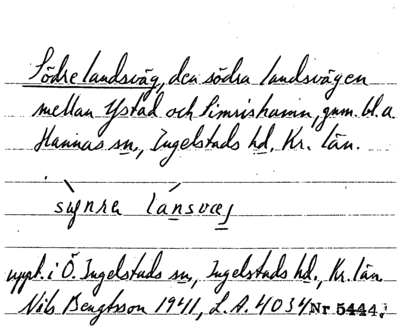 Södre landsväg, den södra landsvägen
mellan Ystad och Simrishamn, gnm. bl. a.
Hannas sn, Ingelstads hd, Kr. län.
sy̍nrna la̍nsvæj
uppt. i Ö. Ingelstads sn, Ingelstads hd., Kr. län
Nils Bengtsson 1941, L.A. 4034 Nr 5444.